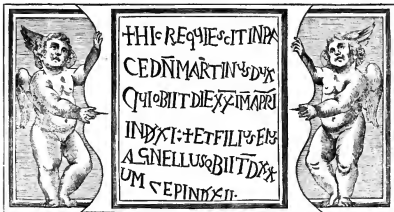 +HIC REQUIESCIT IN PA
CE DÑ MARTINUS DUX
QUI OBIIT DIE XX· IM APRI
IND XI: + ET FILIUS EIUS
AGNELLUS OBIIT D XX
UM CEP IND XII·